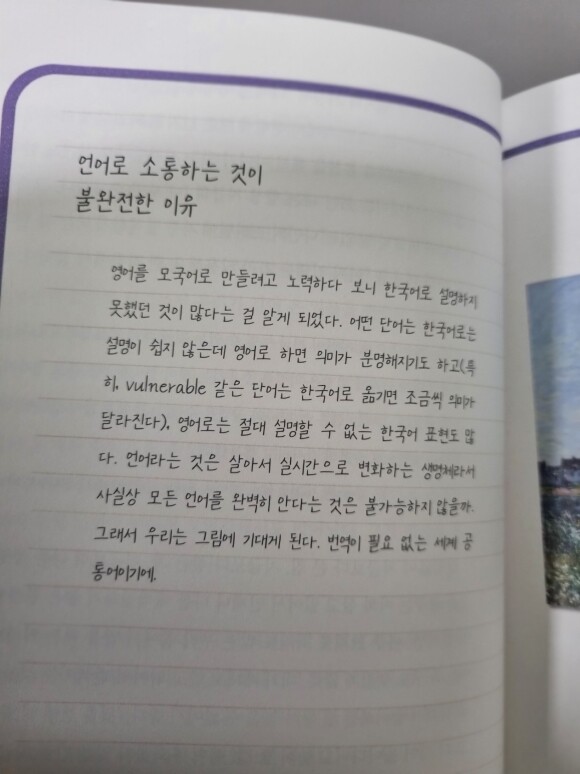 언어로 소통하는 것이
불완전한 이유
영어를 모국어로 만들려고 노력하다 보니 한국어로 설명하지
못했던 것이 많다는 걸 알게 되었다. 어떤 단어는 한국어로는
설명이 쉽지 않은데 영어로 하면 의미가 분명해지기도 하고(특
히, vulnerable 같은 단어는 한국어로 옮기면 조금씩 의미가
달라진다), 영어로는 절대 설명할 수 없는 한국어 표현도 많
다. 언어라는 것은 살아서 실시간으로 변화하는 생명체라서
사실상 모든 언어를 완벽히 안다는 것은 불가능하지 않을까.
그래서 우리는 그림에 기대게 된다. 번역이 필요 없는 세계 공
통어이기에.